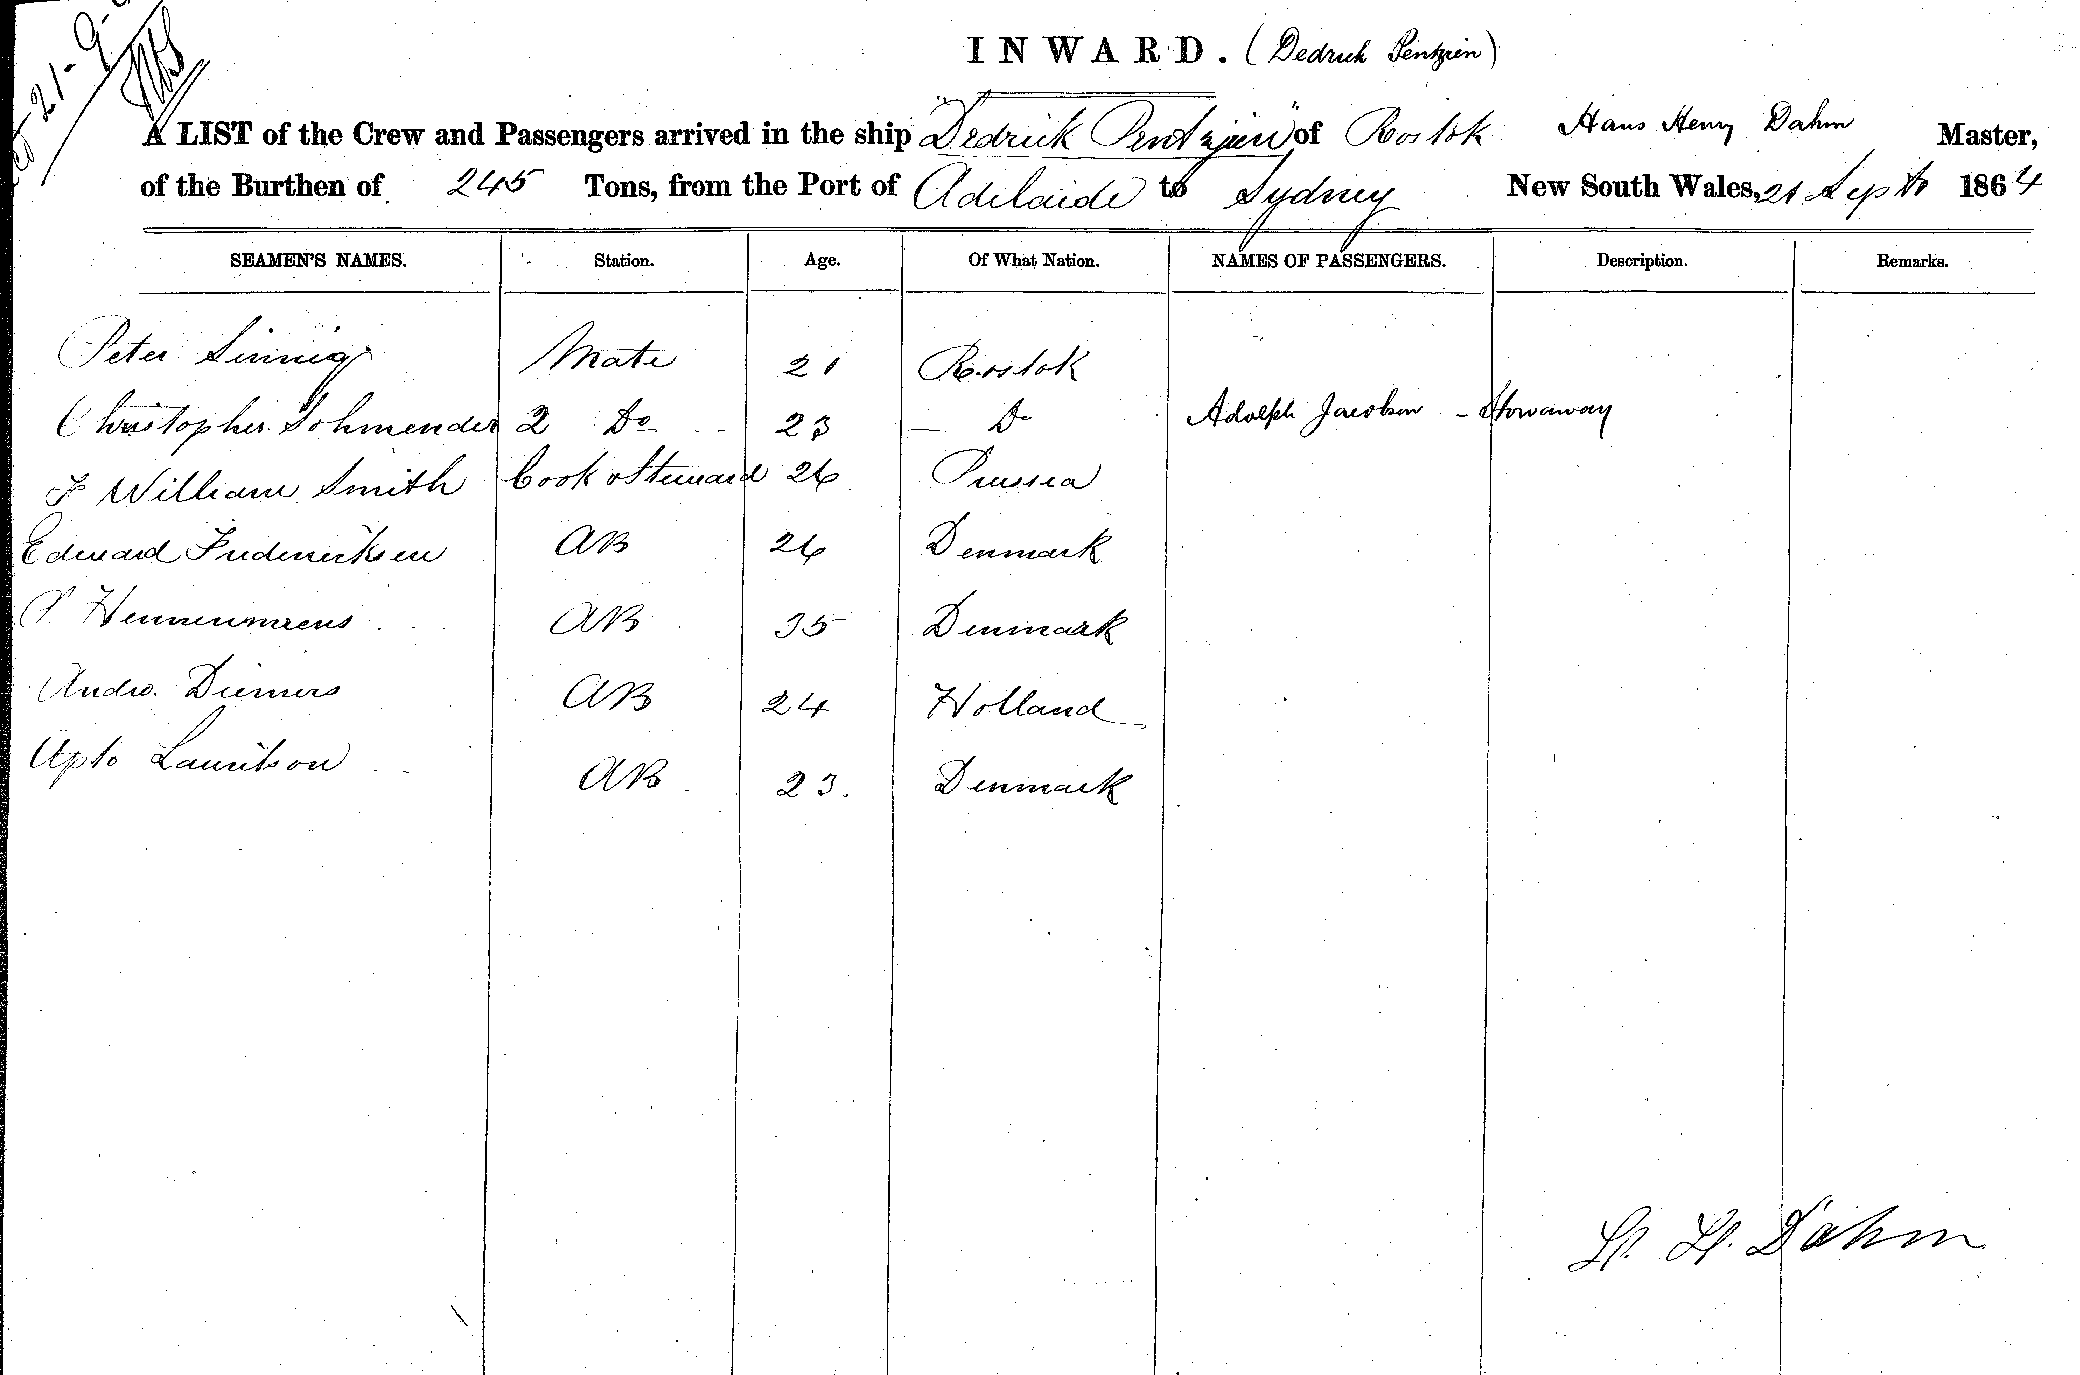 21-9-
INWARD. (Dedrich Pentzien)
A LIST of the Crew and Passengers arrived in the ship "Dedrick Pentzien" of Rostok Hans Henry Dahm Master,
of the Burthen of 245 Tons, from the Port of Adelaide to Sydney New South Wales, 21 Septr 1864
SEAMEN'S NAMES. Station. Age. Of What Nation. NAMES OF PASSENGERS. Description. Remarks.
Peter Sinnig Mate 21 Rostok
Christopher Sohmender 2 Do 23 — Do Adolph Jacobsen - Stowaway
F William Smith Cook & Steward 26 Prussia
Edward Frederricksen AB 26 Denmark
P. AB 35 Denmark
Andw. Diemers AB 24 Holland
Lauritson AB 23. Denmark
H. H. Dahm